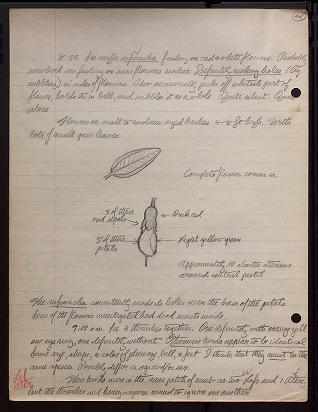 8:55. Fee single rufinucha feeding on red & white flowers. Probably
same bird was feeding on same flowers earlier. Definitely making holes (by
nibbling) in sides of flowers. Also occasionally pulls off whitish part of
flower, holds it in bill, and nibbles it as a whole. Quite silent. Quite
alone.
Flowers on small to medium sized bushes 4-8 ft high. With
lots of small green leaves
Complete flower comes in
5 of these
red sepals
dark red
5 of these
petals
Light yellow green
Approximately 10 shorter stamens
around central pistil
The rufinucha constantly made its holes near the base of the petals
One of the flowers investigated had dead insects inside.
9:00 a.m. See 2 together. One definitely with
eye ring, one definitely without. Otherwise birds appear to be identical
size, shape, & color of plumage, bill, & feet. I think that they must be the
same species. Possibly differ in age and/or sex.
These birds were in the same patch of scrub as two and 1
but the all seemed to ignore one another